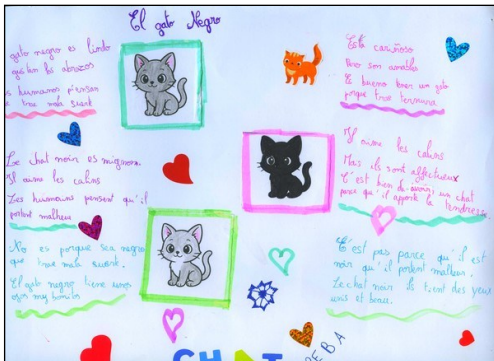 El gato Negro
gato negro es lindo
gustan los abrazos
s humanos piensan
trae mala suert
Le chat noir es mignon.
Il aime les calins
Les humains pensent qu'il
portent malheur
No es porque sea negro
que trae mala suerte.
El gato negro tiene unos
ojos muy bonitos
Está cariñoso
Pero son amables
Es bueno tener un gato
porque trae ternura
Il aime les calins
Mais ils sont affectueux
C'est bien d'avoir un chat
parce qu'il apporte la tendresse
C'est pas parce qu'il est
noir qu'il portent malheur.
Le chat noir il tient des yeux
unis et beau.
CHAT
EBA